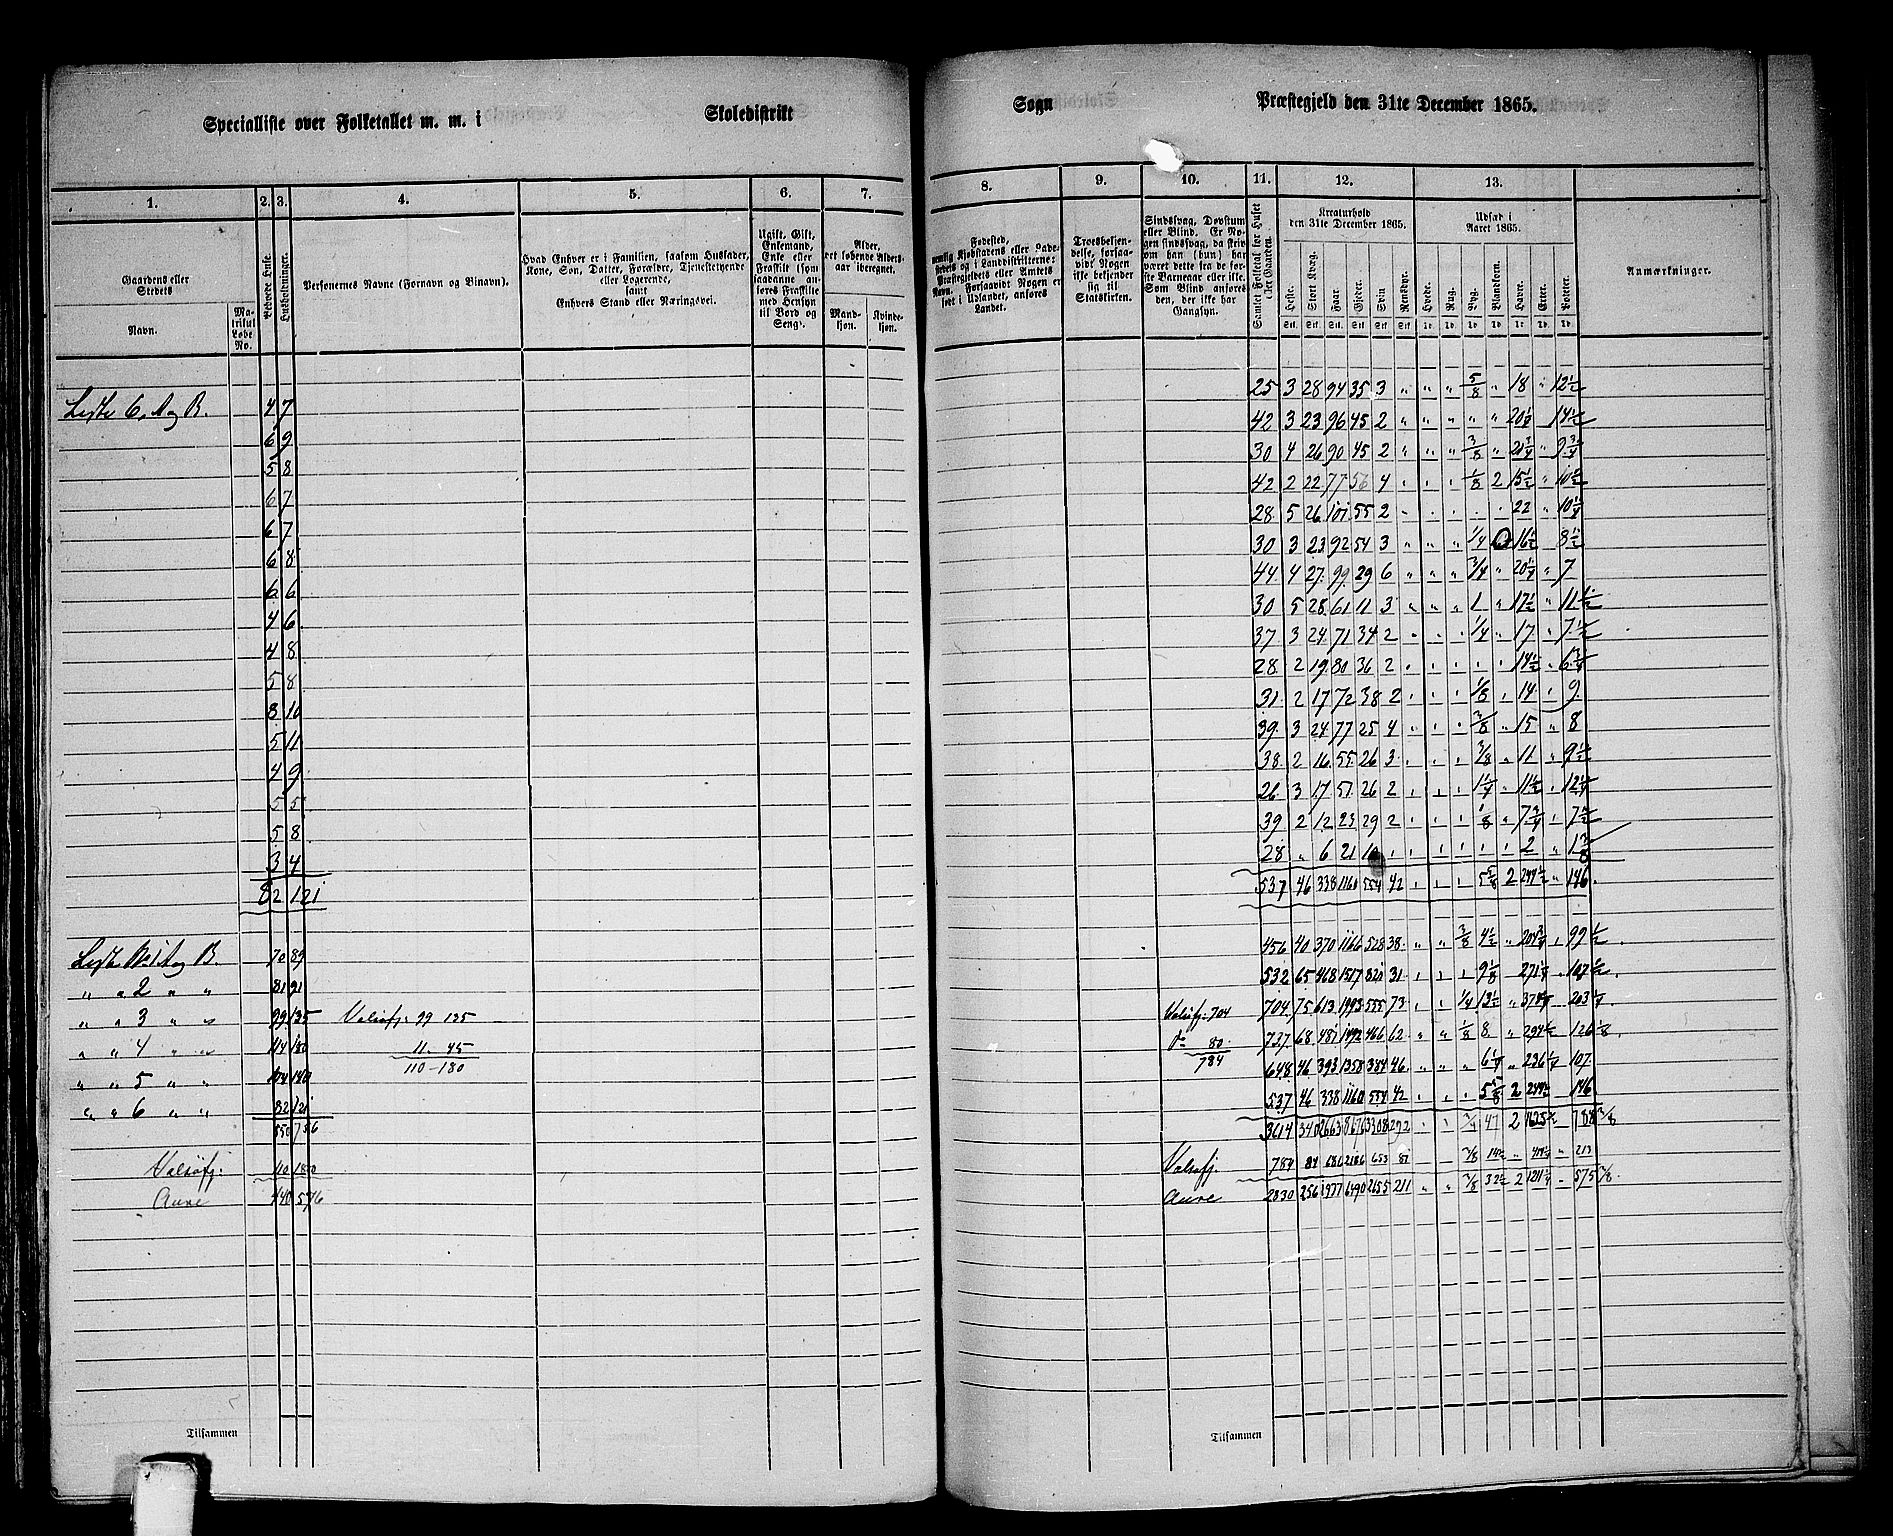 Specialliste over Folketallet m. m. i Skoledistrikt Sogn Præstegjeld den 31te December 1865.
1. 2. 3. 4. 5. 6. 7. 8. 9. 10. 11. 12. 13.
Gaardens eller Stedets
Navn.
Matrikul Løbe No.
Beboede Huse.
Husholdninger.
Personernes Navne (Fornavn og Binavn).
Hvad Enhver er i Familien, saasom Husfader, Kone, Søn, Datter, Forældre, Tjenestetyende eller Logerende, samt Enhvers Stand eller Næringsvei.
Ugift, Gift, Enkemand, Enke eller Fraskilt (som saadanne anføres Fraskilte med Hensyn til Bord og Seng).
Alder, det løbende Aldersaar iberegnet.
Mandkjøn.
Kvindekjøn.
Fødested,
Troesbekjendelse, forsaavidt Nogen ikke bekjender sig til Statskirken.
Sindssvag, Døvstum eller Blind. Er Nogen sindssvag, da skriv om han (hun) har været dette fra de første Barneaar eller ikke. Som Blind anføres den, der ikke har Gangsyn.
Samlet Folketal for Huset eller Gaarden.
Kreaturhold den 31te December 1865.
Heste. Stort Kvæg. Faar. Gjeder. Svin. Rensdyr.
Udsæd i Aaret 1865.
Hvede. Rug. Byg. Blandkorn. Havre. Erter. Poteter.
Anmærkninger.
25 3 28 94 35 3 " " " 5/8 " 18 " 12 1/2
Liste 6. A og B. 4 7
42 3 23 96 45 2 " " " " " 20 1/4 14 1/2
6 9
30 4 26 90 45 2 " " " 3/8 " 21 3/4 " 9 3/4
5 8
42 2 22 77 56 4 1/8 2 15 1/2 " 10 1/2
6 7
28 5 26 101 55 2 22 " 10 1/4
6 7
30 3 23 92 54 3 " " " 1/4 16 1/2 8 1/2
6 8
44 4 27 99 29 6 " " " 3/4 " 20 1/4 " 7
6 6
30 5 28 61 11 3 " " " 1 " 17 1/2 " 11 1/2
4 6
37 3 24 71 34 2 1/4 " 17 " 7 1/2
4 8
28 2 19 80 36 2 14 1/2 " 6 3/4
5 8
31 2 17 72 38 2 1/8 14 9
8 10
39 3 24 77 25 4 3/8 " 15 " 8
5 11
38 2 16 55 26 3 3/8 " 11 " 9 1/2
4 9
26 3 17 51 26 2 1 1/4 11 1/2 12 1/4
5 5
39 2 12 23 29 2 1/8 7 3/4 7 1/2
5 8
28 " 6 21 10 2 "
3 4
537 46 338 1160 554 42 5 5/8 2 249 1/2 " 146
82 121
456 40 370 1166 528 38 " " 3/8 4 1/2 " 204 3/4 99 1/2
Liste No 1 A og B. 70 89
532 65 468 1517 821 31 9 1/8 271 1/4 107 1/2
" " 2 " " 81 91
704 75 613 1993 555 73 1/4 13 1/2 " 378 1/4 203 1/4
" " 3 " " 99 135 Valsøfj: 99 135 Valsøfj: 704
727 68 481 1492 466 62 " " 1/8 8 " 294 1/2 126 1/8
" " 4 " " 114 180 11 45 do 80
110 – 180 784
648 46 393 1358 384 46 " " " 6 1/4 " 236 1/4 107
" " 5 " " 104 140
537 46 338 1160 554 42 5 5/8 2 249 1/2 146
" " 6 " " 82 121
3614 340 2663 8676 3308 292 3/4 47 2 788 5/8
550 756
Valsøfj: 110 180 Valsøfj. 784 84 686 2186 653 81 213
Aure 440 576 Aure 2830 256 1977 6490 2655 211 2 575 5/8
Tilsammen Tilsammen